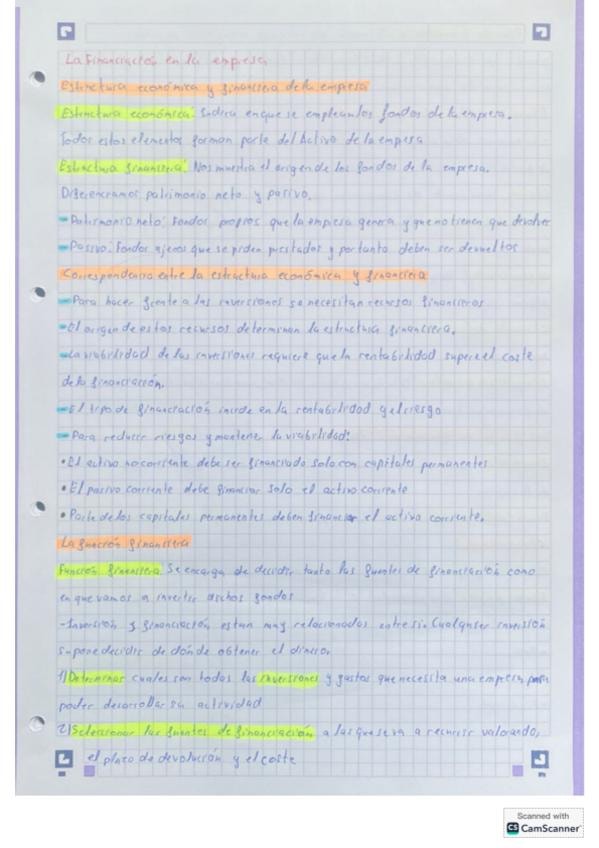 La Financiación en la empresa
Estructura económica y financiera de la empresa
Estructura económica: Indica en que se emplean los fondos de la empresa.
Todos estos elementos forman parte del Activo de la empesa
Estructura financiera: Nos muestra el origen de los fondos de la empresa.
Diferenciamos patrimonio neto y pasivo.
- Patrimonio neto: Fondos propios que la empresa genera y que no tienen que devolver
- Pasivo: Fondos ajenos que se piden prestados y por tanto deben ser devueltos
Correspondencia entre la estructura económica y financiera
- Para hacer frente a las inversiones se necesitan recursos financieros
- El origen de estos recursos determinan la estructura financiera.
- La viabilidad de las inversiones requiere que la rentabilidad supere el coste
de la financiación.
- El tipo de financiación incide en la rentabilidad y el riesgo
- Para reducir riesgos y mantener la viabilidad:
• El activo no corriente debe ser financiado solo con capitales permanentes
• El pasivo corriente debe financiar solo el activo corriente
• Parte de los capitales permanentes deben financiar el activo corriente.
La función financiera
Función financiera. Se encarga de decidir tanto las fuentes de financiación como
en que vamos a invertir dichos fondos
- Inversión y financiación estan muy relacionados entre si. Cualquier inversión
supone decidir de dónde obtener el dinero.
1) Determinar cuales son todos las inversiones y gastos que necesita una empresa para
poder desarrollar su actividad
2) Seleccionar las fuentes de financiación a las que se va a recurrir valorando,
el plazo de devolución y el coste
Scanned with
CS CamScanner